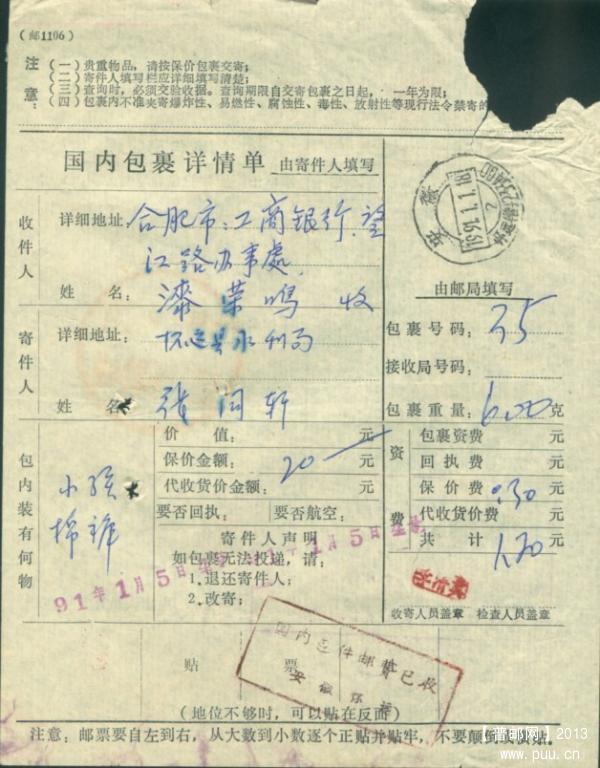 （邮1106）
注意：
（一）贵重物品，请按保价包裹交寄；
（二）寄件人填写栏应详细填写清楚；
（三）查询时，必须交验收据。查询期限自交寄包裹之日起，一年为限；
（四）包裹内不准夹寄爆炸性、易燃性、腐蚀性、毒性、放射性等现行法令禁寄的
国内包裹详情单 由寄件人填写
收件人
详细地址：合肥市：工商银行望
江路办事處
姓名：漆荣鸣 收
寄件人
详细地址：怀远县水利局
姓名：张润轩
包内装有何物
小孩
棉裤
价值： 元
保价金额：20 元
代收货价金额： 元
要否回执： 要否航空：
寄件人声明
如包裹无法投递，请：
1.退还寄件人；
2.改寄：
安徽
1991.1.1.18
由邮局填写
包裹号码：35
接收局号码：
包裹重量：600克
资费
包裹资费 元
回执费 元
保价费 0.30 元
代收货价费 元
共计 1.70 元
收寄人员盖章 检查人员盖章
91年1月5日
1月5日
贴 票
国内包件邮费已收
安徽怀远
（地位不够时，可以贴在反面）
注意：邮票要自左到右，从大数到小数逐个正贴并贴牢，不要颠倒或横贴。
【普邮网】2013
www.puu.cn